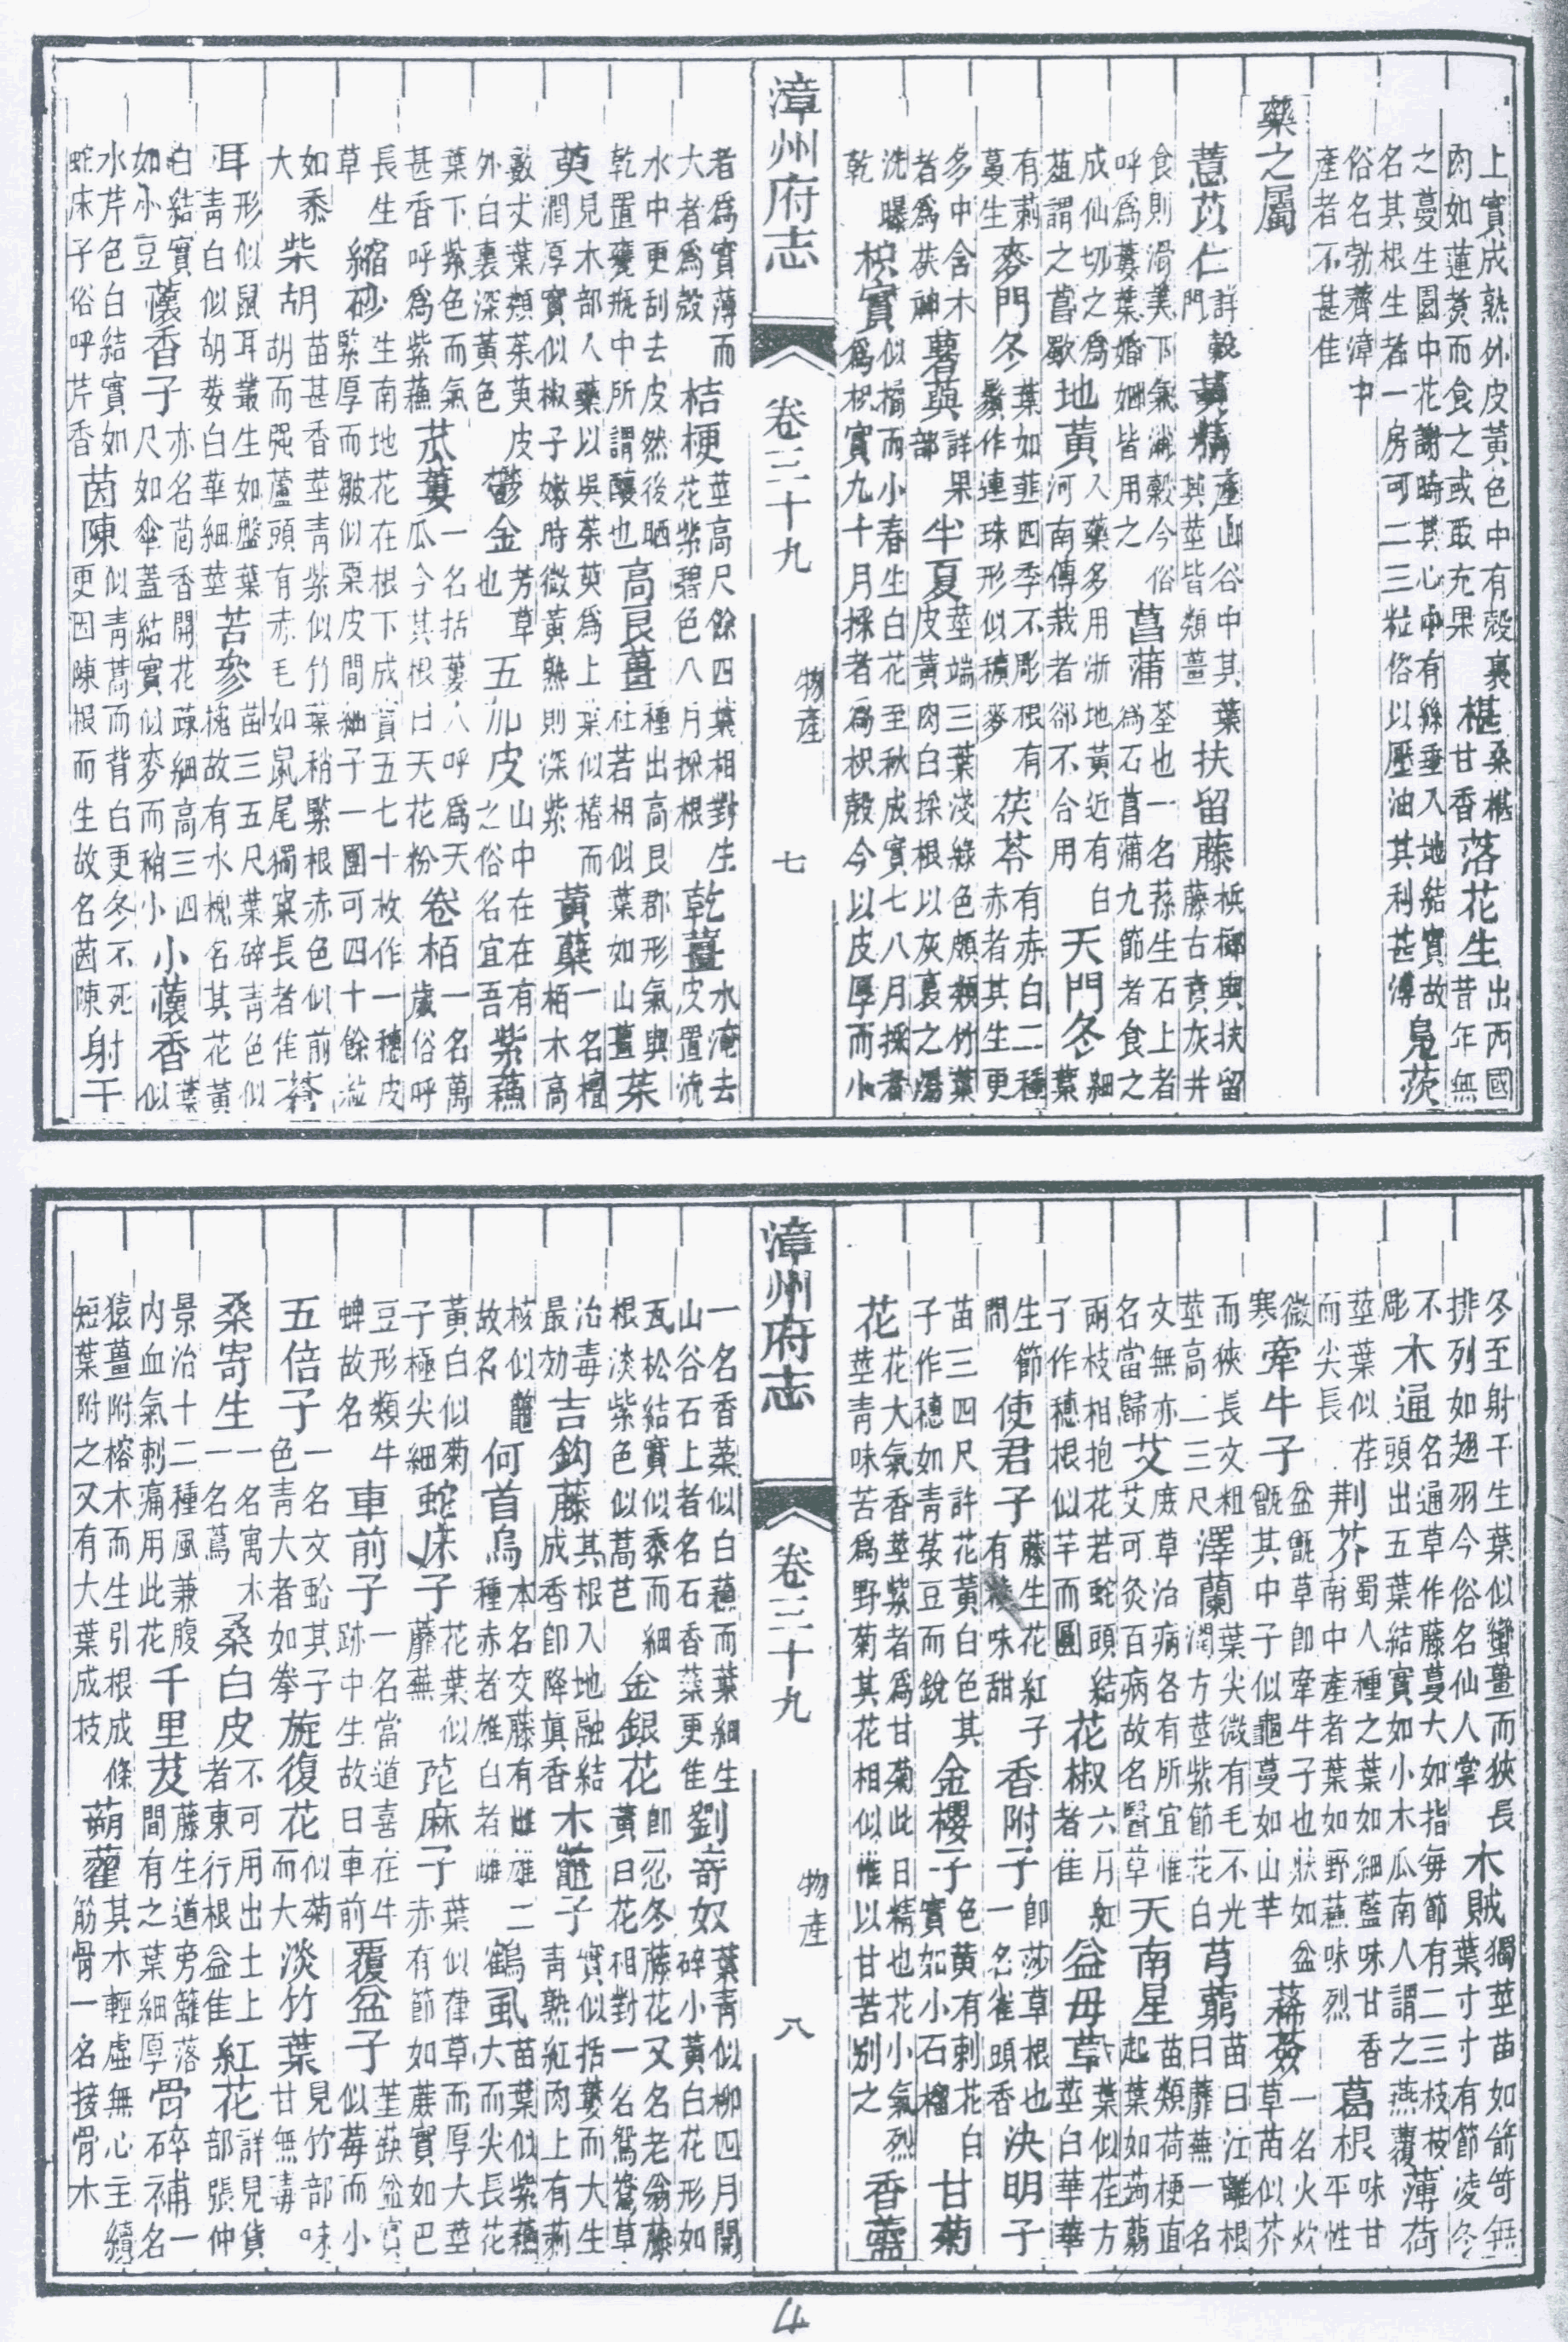 上實成熟外皮黃色中有殼裏
肉如蓮煑而食之或取充果
椹桑椹甘香
落花生出丙國昔年無
之蔓生園中花謝時其心中有絲垂入地結實故
名其根生者一房可二三粒俗以壓油其利甚溥
鳧茨
俗名勃薺漳中
產者不甚佳
藥之屬
薏苡仁詳穀門
黃精產山谷中其葉其莖皆類薑
扶留藤檳榔與扶留藤古賁灰井
食則滑美下氣消穀今俗
呼爲蔞葉婚姻皆用之
菖蒲荃也一名蓀生石上者爲石菖蒲九節者食之
成仙切之爲
葅謂之菖歜
地黃入藥多用浙地黃近有白
河南傳栽者郤不合用
天門冬細葉
有莿
蔓生
麥門冬葉如韮四季不彫根有鬚作連珠形似穬麥
茯苓有赤白二種赤者其生更
多中含木
者爲茯神
薯蕷詳果部
半夏莖端三葉淺綠色頗類竹葉皮黃肉白採根以灰裹之湯
洗曝
乾
枳實似橘而小春生白花至秋成實七八月採者
爲枳實九十月採者爲枳殼今以皮厚而小
漳州府志 卷三十九 物產 七
者爲實薄而
大者爲殼
桔梗莖高尺餘四葉相對生花紫碧色八月採根
乾薑水淹去皮置流
水中更刮去皮然後晒
乾置甕瓶中所謂釀也
高良薑種出高良郡形氣與杜若相似葉如山薑
茱
萸見木部人藥以吳茱萸爲上葉似椿而
潤厚實似椒子嫩時微黃熟則深紫
黃蘗一名檀栢木高
數丈葉類茱萸皮
外白裏深黃色
鬱金芳草也
五加皮山中在在有之俗名宜吾
紫蘇
葉下紫色而氣
甚香呼爲紫蘇
苽蔞一名括蔞人呼爲天瓜今其根曰天花粉
卷栢一名萬歲俗呼
長生
草
縮砂生南地花在根下成實五七十枚作一穗皮
緊厚而皺似栗皮間細子一團可四十餘粒
如黍
大
柴胡苗甚香莖青紫似竹葉稍緊根赤色似前
胡而强蘆頭有赤毛如鼠尾獨窠長者佳
蒼
耳形似鼠耳叢生如盤葉
青白似胡荽白華細莖
苦參苗三五尺葉碎青色似槐故有水槐名其花黃
白結實
如小豆
蘹香子亦名茴香開花疎細高三四
尺如傘蓋結實似麥而稍小
小蘹香葉似
水芹色白結實如
蛇床子俗呼芹香
茵陳似青蒿而背白更冬不死
更因陳根而生故名茵陳
射干
冬至射干生葉似蠻薑而狹長
排列如翅羽今俗名仙人掌
木賊獨莖苗如箭笴無葉寸寸有節凌冬
不彫
木通名通草作藤蔓大如指每節有二三枝枝
頭出五葉結實如小木瓜南人謂之燕覆
薄荷
莖葉似荏
而尖長
荆芥蜀人種之葉如細藍味甘香
南中產者葉如野蘇味烈
葛根味甘平性
微
寒
牽牛子盆甑草卽牽牛子也狀如盆
甑其中子似龜蔓如山芋
蒓薟一名火炊草苗似芥
而狹長文粗
莖高二三尺
澤蘭葉尖微有毛不光
潤方莖紫節花白
芎藭苗曰江離根曰蘼蕪一名
文無亦
名當歸
艾庶草治病各有所宜惟
艾可灸百病故名醫草
天南星苗類荷梗直起葉如蒟蒻
兩枝相抱花若蛇頭結
子作穗根似芋而圓
花椒六月紅者佳
益母草葉似荏方莖白華華
生節
間
使君子藤生花紅子有稜味甜
香附子卽莎草根也一名雀頭香
決明子
苗三四尺許花黃白色其
子作穗如青菉豆而銳
金櫻子色黃有刺花白實如小石榴
甘菊
花花大氣香莖紫者爲甘菊此日精也花小氣烈
莖青味苦爲野菊其花相似惟以甘苦別之
香薷
漳州府志 卷三十九 物產 八
一名香葇似白蘇而葉細生
山谷石上者名石香葇更佳
劉寄奴葉青似柳四月開碎小黃白花形如
瓦松結實似黍而細
根淡紫色似萵苣
金銀花卽忍冬藤花又名老翁藤
黃白花相對一名鴛鴦草
治毒
最効
吉鈎藤其根入地融結
成香卽降眞香
木鼈子實似括蔞而大生
青熟紅肉上有莿
核似鼈
故名
何首烏本名交藤有雌雄二
種赤者雄白者雌
鶴虱苗葉似紫蘇大而尖長花
黃白似菊
子極尖細
蛇床子花葉似蘼蕪
萞麻子葉似葎草而厚大莖
赤有節如蔗實如巴
豆形類牛
蜱故名
車前子一名當道喜在牛
跡中生故曰車前
覆盆子莖蒛盆實似莓而小
五倍子一名文蛤其子
色青大者如拳
旋復花似菊而大
淡竹葉見竹部味甘無毒
桑寄生一名寓木
一名蔦
桑白皮不可用出土上
者東行根益佳
紅花詳見貨部張仲
景治十二種風兼腹
內血氣刺痛用此花
千里芨藤生道旁籬落
間有之葉細厚
骨碎補一名
猿薑附榕木而生引根成條
短葉附之又有大葉成枝
蒴藋其木輕虛無心主續
筋骨一名接骨木
4